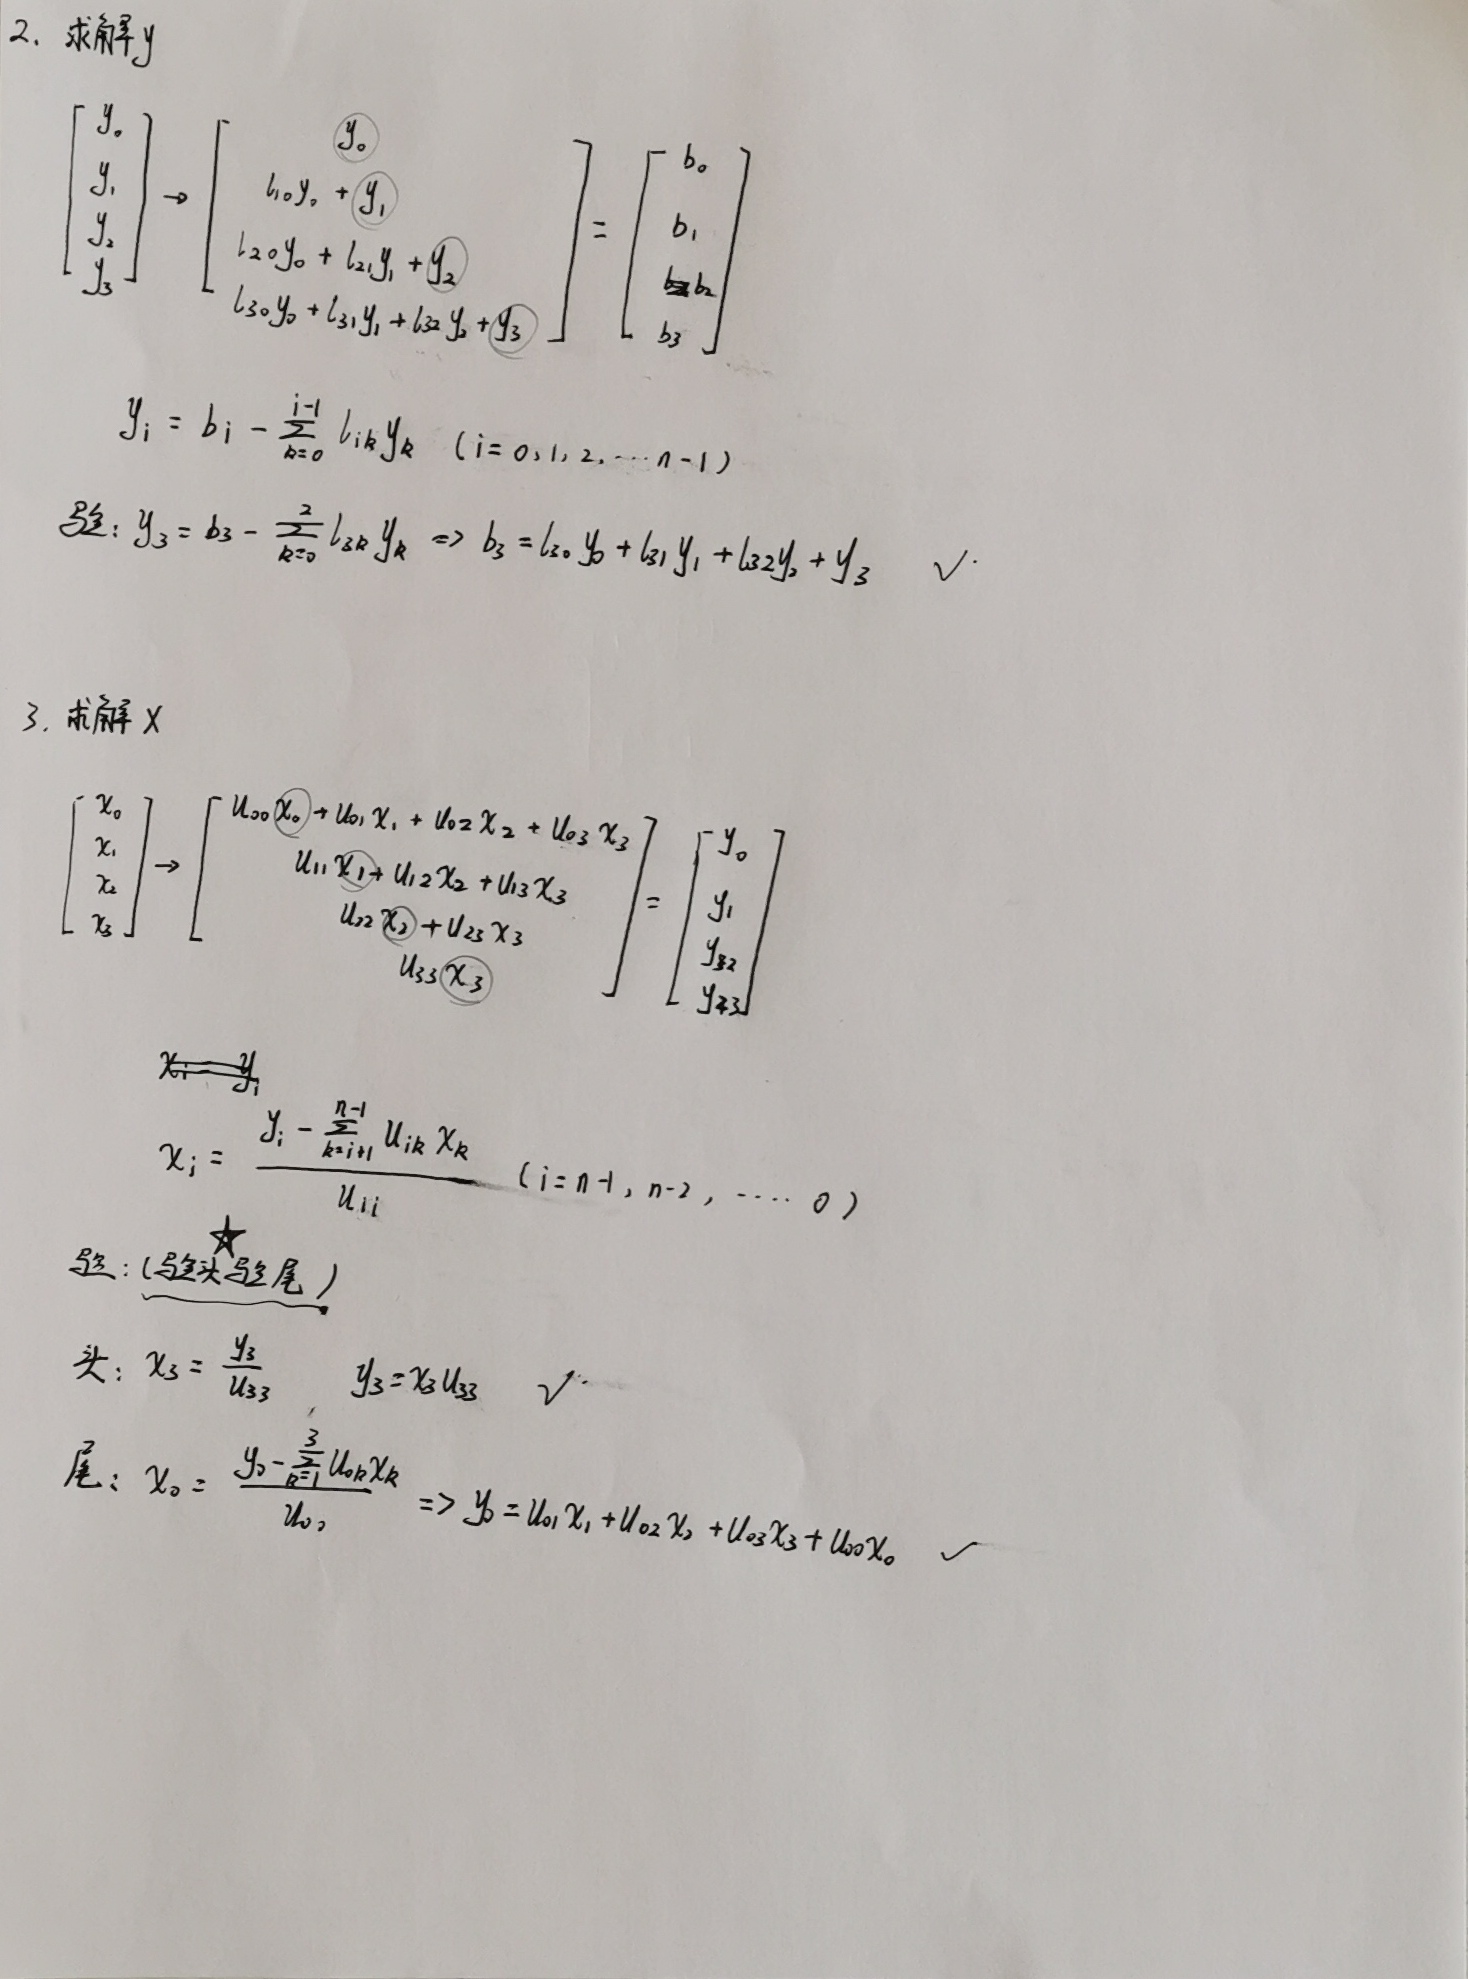 2. 求解y
[y₀ y₁ y₂ y₃] → [y₀
l₁₀y₀ + y₁
l₂₀y₀ + l₂₁y₁ + y₂
l₃₀y₀ + l₃₁y₁ + l₃₂y₂ + y₃] = [b₀ b₁ b₂ b₃]
yᵢ = bᵢ - Σ_{k=0}^{i-1} lᵢₖyₖ (i = 0, 1, 2, ... n-1)
验: y₃ = b₃ - Σ_{k=0}^{2} l₃ₖyₖ => b₃ = l₃₀y₀ + l₃₁y₁ + l₃₂y₂ + y₃ ✓
3. 求解x
[x₀ x₁ x₂ x₃] → [u₀₀x₀ + u₀₁x₁ + u₀₂x₂ + u₀₃x₃
u₁₁x₁ + u₁₂x₂ + u₁₃x₃
u₂₂x₂ + u₂₃x₃
u₃₃x₃] = [y₀ y₁ y₂ y₃]
xᵢ = yᵢ
xᵢ = (yᵢ - Σ_{k=i+1}^{n-1} uᵢₖxₖ) / uᵢᵢ (i = n-1, n-2, .... 0)
★
验: (验头验尾)
头: x₃ = y₃/u₃₃ y₃ = x₃u₃₃ ✓
尾: x₀ = (y₀ - Σ_{k=1}^{3} u₀ₖxₖ) / u₀₀ => y₀ = u₀₁x₁ + u₀₂x₂ + u₀₃x₃ + u₀₀x₀ ✓